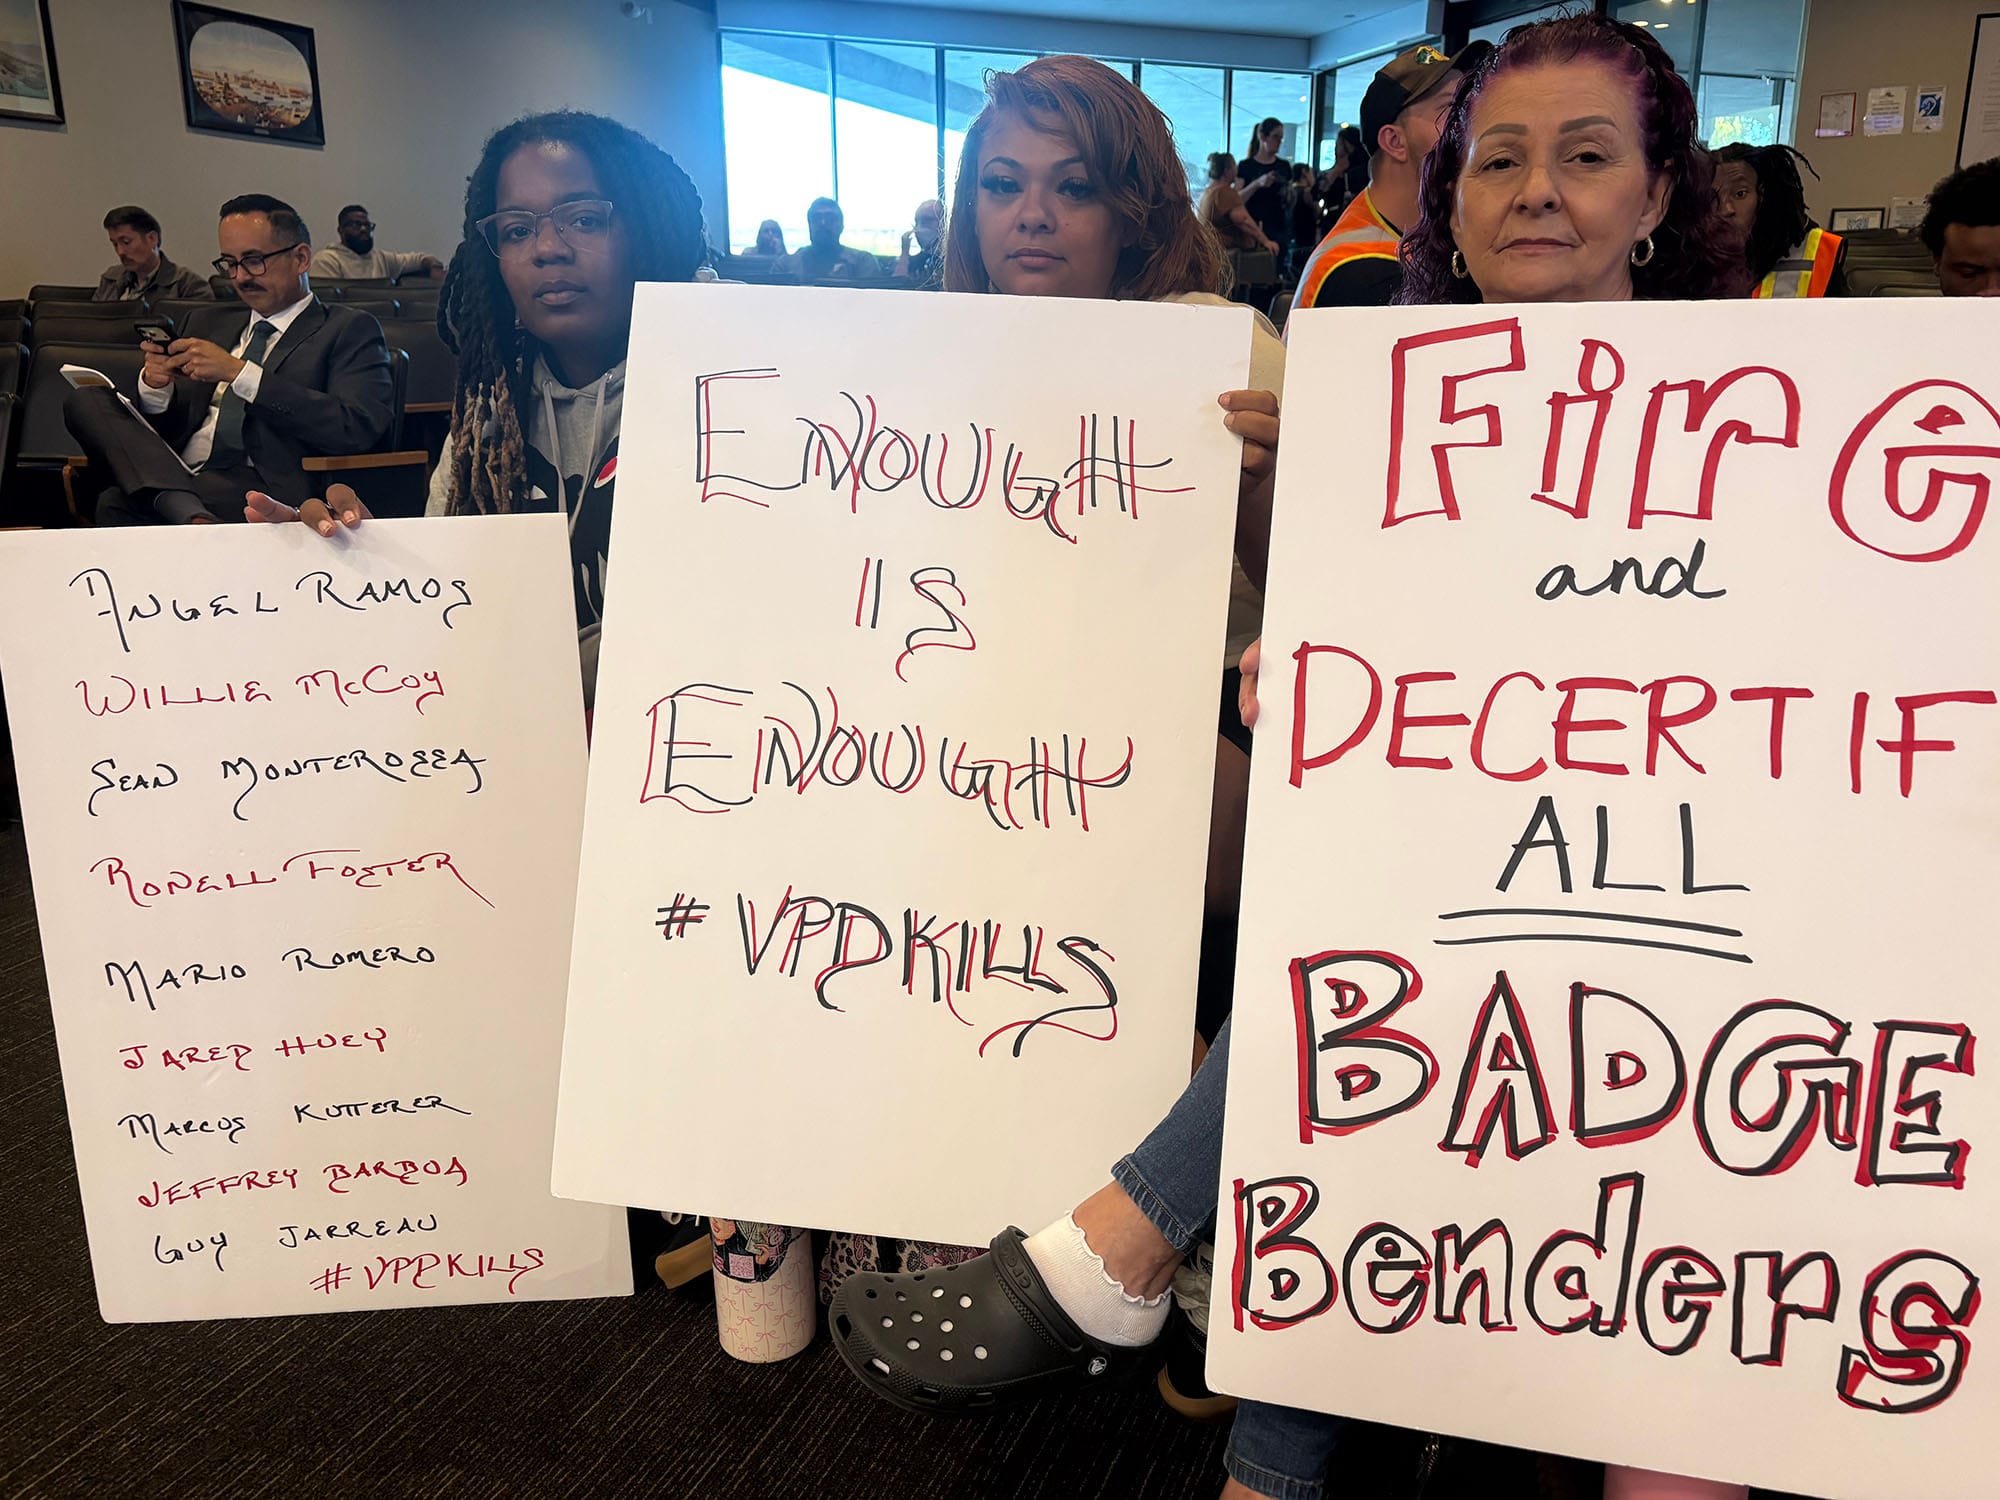 ANGEL RAMOS
WILLIE McCOY
SEAN MONTERROSA
RONELL FOSTER
MARIO ROMERO
JARED HUEY
MARCUS KUTTERER
JEFFREY BARBOA
GUY JARREAU
#VPDKILLS
ENOUGH
IS
ENOUGH
#VPDKILLS
Fire
and
DECERTIF
ALL
BADGE
Benders